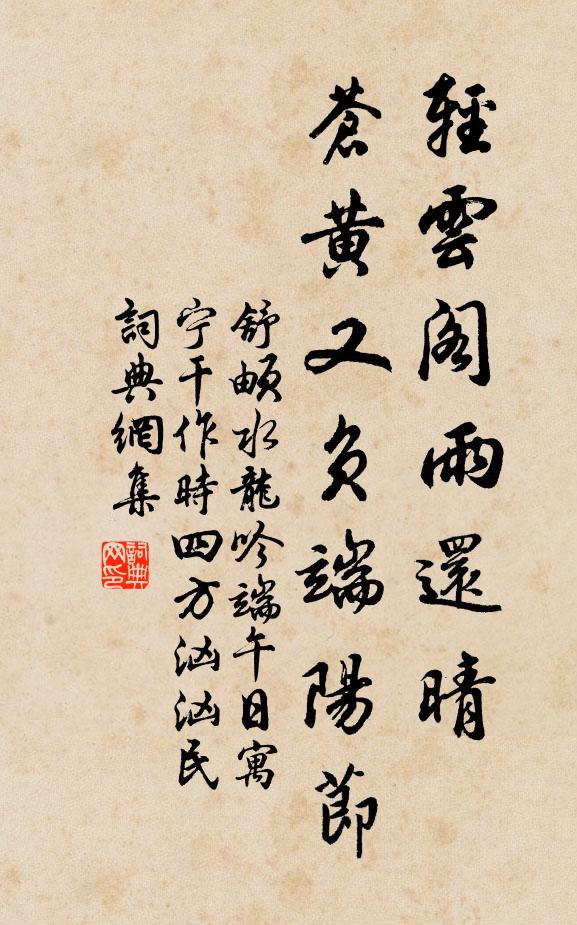 輕雲閣雨還晴
蒼黃又負端陽節
舒頔水龍吟端午日寓
宁干作時四方汹汹民
詞典網集
詞典
网印